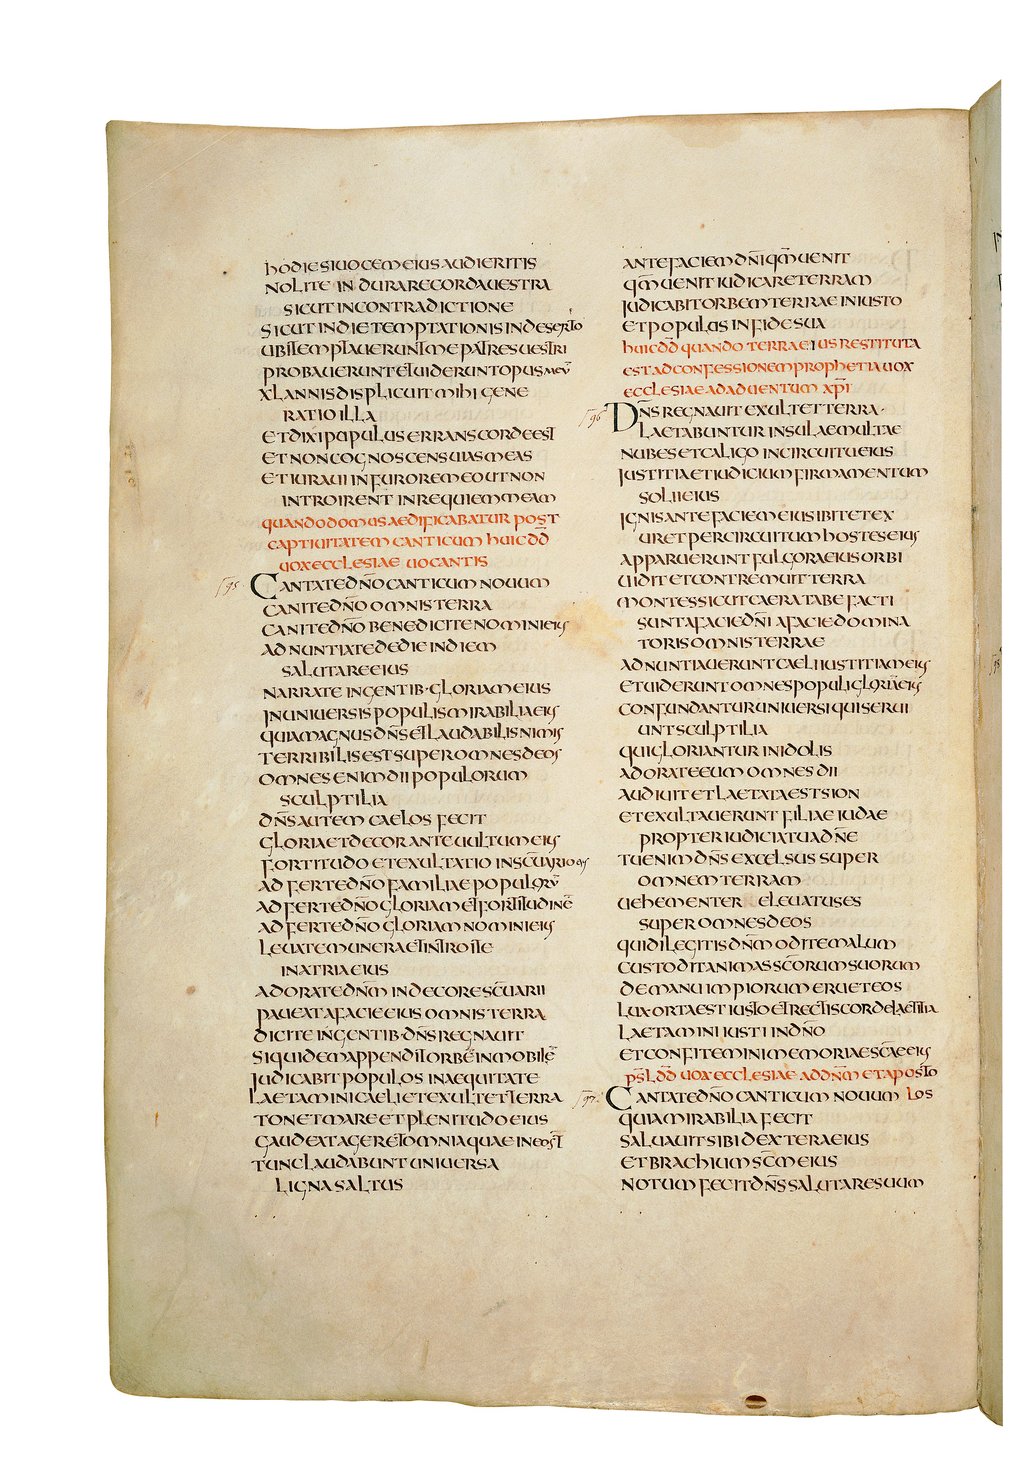 hodie si uocem eius audieritis
nolite indurare corda uestra
sicut in contradictione
sicut in die temptationis in deserto
ubi temptauerunt me patres uestri
probauerunt et uiderunt opus meū
xl annis displicuit mihi gene
ratio illa
et dixi populus errans corde est
et non cognoscens uias meas
et iuraui in furore meo ut non
introirent in requiem meam
quando domus aedificabatur post
captiuitatem canticum huic dd̄
uox ecclesiae uocantis
95
Cantate dn̄o canticum nouum
canite dn̄o omnis terra
canite dn̄o benedicite nomini eius
adnuntiate de die in diem
salutare eius
narrate in gentib· gloriam eius
in uniuersis populis mirabilia eius
quia magnus dn̄s et laudabilis nimis
terribilis est super omnes deos
omnes enim dii populorum
sculptilia
dn̄s autem caelos fecit
gloria et decor ante uultum eius
fortitudo et exultatio in sc̄uario eius
adferte dn̄o familiae populorū
adferte dn̄o gloriam et fortitudinē
adferte dn̄o gloriam nomini eius
leuate munera et introite
in atria eius
adorate dn̄m in decore sc̄uarii
paueat a facie eius omnis terra
dicite in gentib· dn̄s regnauit
siquidem appendit orbē inmobilē
iudicabit populos in aequitate
laetamini caeli et exultet terra
tonet mare et plenitudo eius
gaudeat ager et omnia quae in eo st̄
tunc laudabunt uniuersa
ligna saltus
ante faciem dn̄i qm̄ uenit
qm̄ uenit iudicare terram
iudicabit orbem terrae in iusto
et populus in fide sua
huic dd̄ quando terra eius restituta
est ad confessionem prophetia uox
ecclesiae ad aduentum xp̄i
96
Dn̄s regnauit exultet terra·
laetabuntur insulae multae
nubes et caligo in circuitu eius
iustitia et iudicium firmamentum
solii eius
ignis ante faciem eius ibit et ex
uret per circuitum hostes eius
apparuerunt fulgora eius orbi
uidit et contremuit terra
montes sicut caera tabefacti
sunt a facie dn̄i a facie domina
toris omnis terrae
adnuntiauerunt caeli iustitiam eius
et uiderunt omnes populi gloriā eius
confundantur uniuersi qui serui
unt sculptilia
qui gloriantur in idolis
adorate eum omnes dii
audiuit et laetata est sion
et exultauerunt filiae iudae
propter iudicia tua dn̄e
tu enim dn̄s excelsus super
omnem terram
uehementer eleuatus es
super omnes deos
qui diligitis dn̄m odite malum
custodit animas sc̄orum suorum
de manu impiorum eruet eos
lux orta est iusto et rectis corde laetitia
laetamini iusti in dn̄o
et confitemini memoriae sc̄ae eius
ps̄l dd̄ uox ecclesiae ad dn̄m et aposto
los
97
Cantate dn̄o canticum nouum
quia mirabilia fecit
saluauit sibi dextera eius
et brachium sc̄m eius
notum fecit dn̄s salutare suum